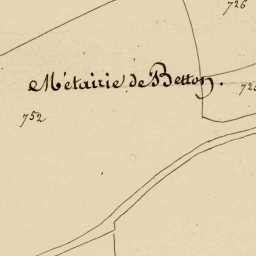 726
Métairie de Betton.
752